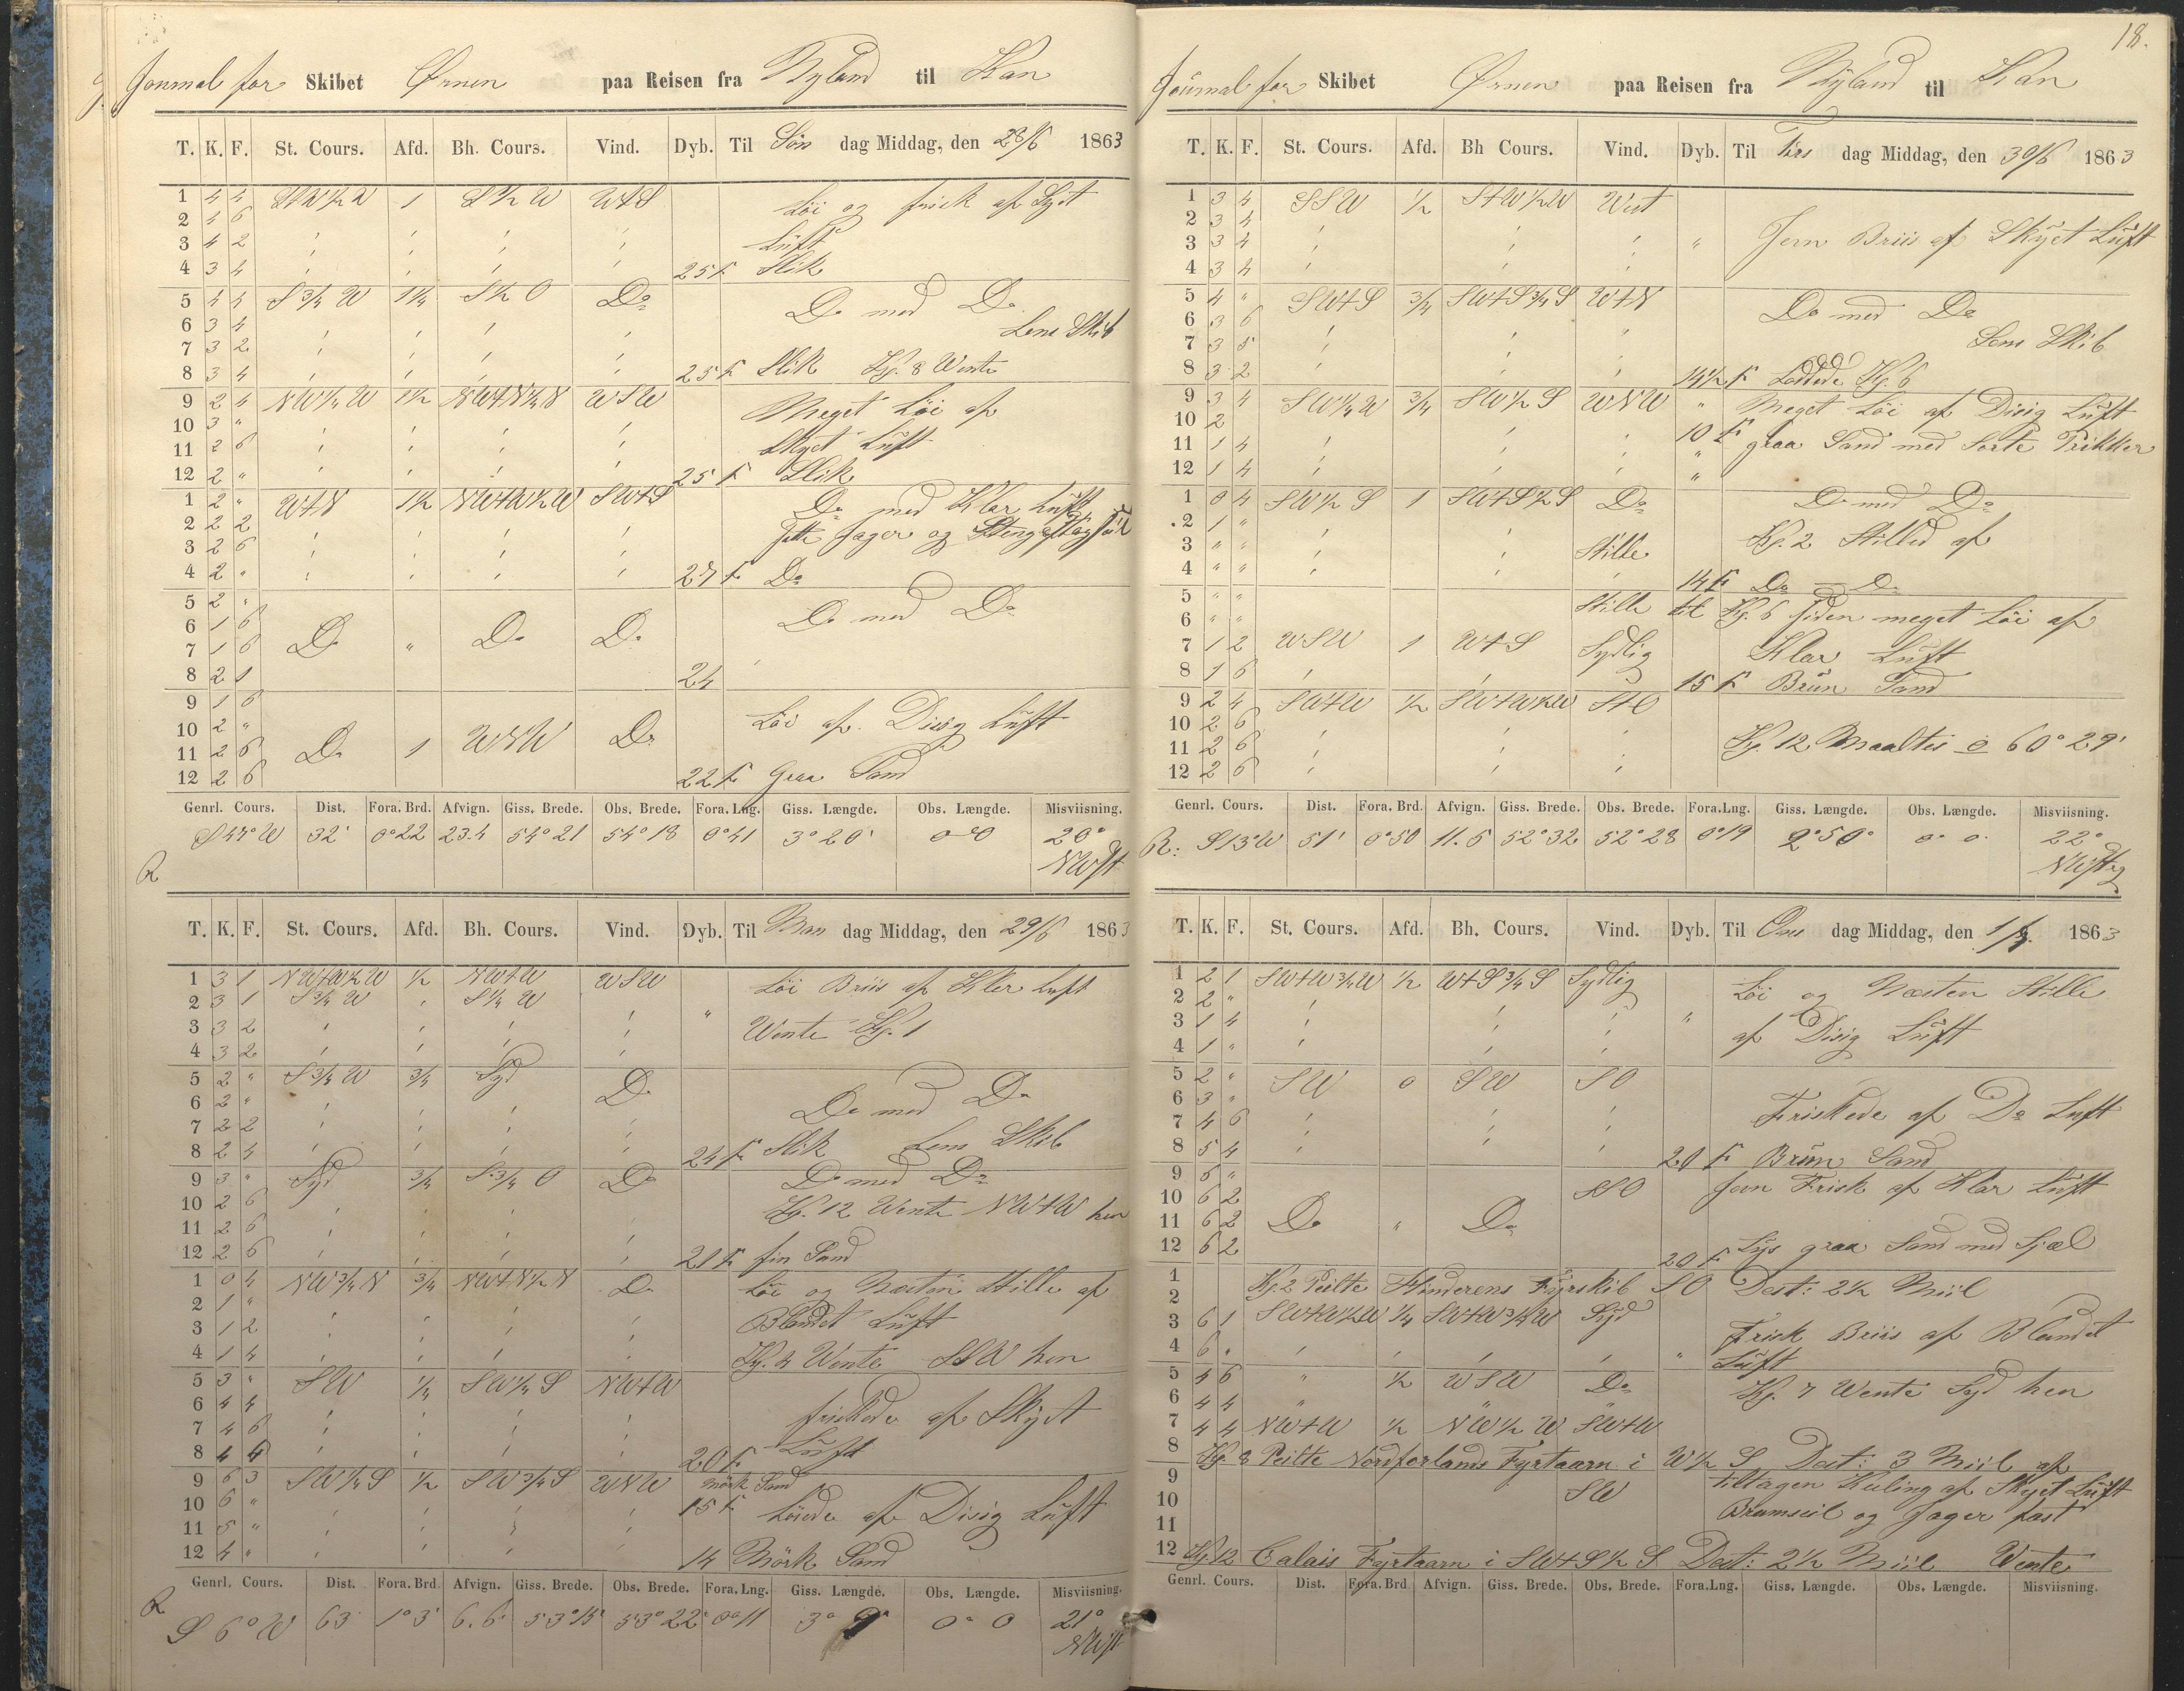 Journal for Skibet Ørnen paa Reisen fra Nyland til Kan
T. K. F. St. Cours. Afd. Bh. Cours. Vind. Dyb. Til Søn dag Middag, den 28/6 1863
1 4 4 1 S½W WtS Löi og frisk af Skyet
2 4 6 Luft
3 4 2
4 3 4 25 F. Slik
5 4 4 S¾W 1¼ S½O Do
6 3 4 Do med Do
7 3 2 Lens Skib
8 3 4 25 F. Slik Kj. 8 Wente
9 2 4 NW¼W 1½ NWtN¼N WSW Meget Löi af
10 3 "
11 2 6 Skyet Luft
12 2 " 25 F. Slik
1 2 " WtN 1½ NWtW½W SWtS Do med Klar Luft
2 2 2 Jager og
3 2 6
4 2 " 27 F. Do
5 2 "
6 1 6 Do med Do
7 1 6 Do " Do Do
8 2 1 24
9 1 6
10 2 " Löi af Disig Luft
11 2 6 Do 1 WNW Do
12 2 6 22 F. Graa Sand
Genrl. Cours. Dist. Fora. Brd. Afvign. Giss. Brede. Obs. Brede. Fora. Lng. Giss. Længde. Obs. Længde. Misviisning.
S 47° W 32' 0° 22 23.4 54° 21 54° 18 0° 41 3° 20' 0° 0 20°
R NWst
T. K. F. St. Cours. Afd. Bh. Cours. Vind. Dyb. Til Man dag Middag, den 29/6 1863
1 3 1 NWtW½W ½ NWtW WSW Löi Briis af Klar Luft
2 3 1 S¾W S¼W
3 3 2 " Wente Kj. 1
4 3 2
5 2 " S¾W ¾ Syd Do
6 2 " Do med Do
7 2 2
8 2 4 24 F. Slik Lens Skib
9 3 " Syd ¾ S¾O Do Do med Do
10 2 6 Kj. 12 Wente NWtW hen
11 2 6
12 2 6 21 F. fin Sand
1 0 4 NW¾N ¾ NWtN½N Do Löi og Næsten Stille af
2 1 "
3 1 2 Blandet Luft
4 1 4 Kj. 4 Wente SSW hen
5 3 " SW ¼ SW¼S NWtW
6 4 4 friskede af Skyet
7 4 6
8 4 4 20 F. Luft
9 6 3 SW¼S ½ SW¾S WNW Mörk Sand
10 6 " 15 F. Löiede af Disig Luft
11 5 "
12 4 " 14 Mörk Sand
Genrl. Cours. Dist. Fora. Brd. Afvign. Giss. Brede. Obs. Brede. Fora. Lng. Giss. Længde. Obs. Længde. Misviisning.
R S 6° W 63 1° 3' 6.6 53° 15' 53° 22' 0° 11 3° 9' 0° 0 21°
NWst
18.
Journal for Skibet Ørnen paa Reisen fra Nyland til Kan
T. K. F. St. Cours. Afd. Bh Cours. Vind. Dyb. Til Tirs dag Middag, den 30/6 1863
1 3 4 SSW ½ StW½W West
2 3 4 Jevn Briis af Skyet Luft
3 3 4 "
4 3 4
5 4 " SWtS ¾ SWtS¾S WtN
6 3 6 Do med Do
7 3 5 Lens Skib
8 3 2 14½ F. Loddede Kj. 6
9 3 4 SW¼W ¾ SW½S WNW " Meget Löi af Disig Luft
10 2
11 1 4 10 F. graa Sand med Sorte Prikker
12 1 4 "
1 0 4 SW½S 1 SWtS½S Do Do med Do
2 1 "
3 " " Stille Kj. 2 Stilled af
4 " " 14 F. Do — Do
5 " " Stille til Kj. 6 siden meget Löi af
6 " "
7 1 2 WSW 1 WtS Sydlig Klar Luft
8 1 6 15 F. Brün Sand
9 2 4 SWtW ½ SWtW½W StO
10 2 6
11 2 6 Kj. 12 Maaltes 60° 29'
12 2 6
Genrl. Cours. Dist. Fora. Brd. Afvign. Giss. Brede. Obs. Brede. Fora. Lng. Giss. Længde. Obs. Længde. Misviisning.
R: S 13° W 51' 0° 50 11.5 52° 32 52° 28 0° 19 2° 50' 0° 0 22°
NWstg
T. K. F. St. Cours. Afd. Bh. Cours. Vind. Dyb. Til Ons dag Middag, den 1/7 1863
1 2 1 SWtW¾W ½ WtS¾S Sydlig Löi og Næsten Stille
2 2 "
3 1 4 " af Disig Luft
4 1 "
5 2 " SW 0 SW SO
6 3 "
7 4 6 Friskede af Do Luft
8 5 4 20 F. Brün Sand
9 6 " SSO Jevn Frisk af Klar Luft
10 6 2
11 6 2 Do " Do
12 6 2 20 F. Lys graa Sand med Sjæl
1 Kj. 2 Peilte Hinderens Fyrskib SO Dest: 2½ Miil
2
3 6 1 SWtW½W ¼ SWtW¾W Syd Frisk Briis af Blandet
4 6 " " Luft
5 4 6 " ½ WSW Do Kj. 7 Wente Syd hen
6 4 4
7 4 4 NWtW ½ NW½W SWtW
8 Kj. 8 Peilte Nordforlands Fyrtaarn i W½S Dest: 3 Miil af
9 SW tiltagen Kuling af Skyet Luft
10 Bramseil og Jager fast
11
12 Kj 12 Calais Fyrtaarn i SWtS½S Dest: 2½ Miil Wente
Genrl. Cours. Dist. Fora. Brd Afvign. Giss. Brede. Obs. Brede. Fora. Lng. Giss. Længde. Obs. Længde. Misviisning.